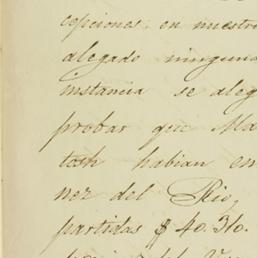 cepciones en nuestro
alegado ninguna
instancia se aleg
probar que Ma
tosh habian en
ner del Rio,
partidas $ 40.310.